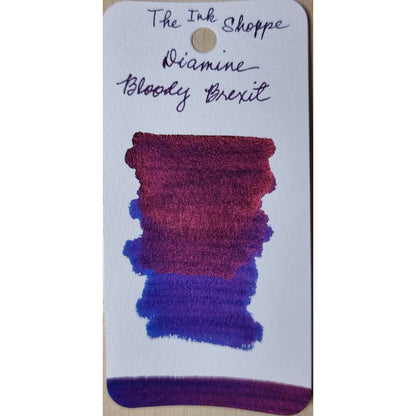 The Ink Shoppe
Diamine
Bloody Brexit